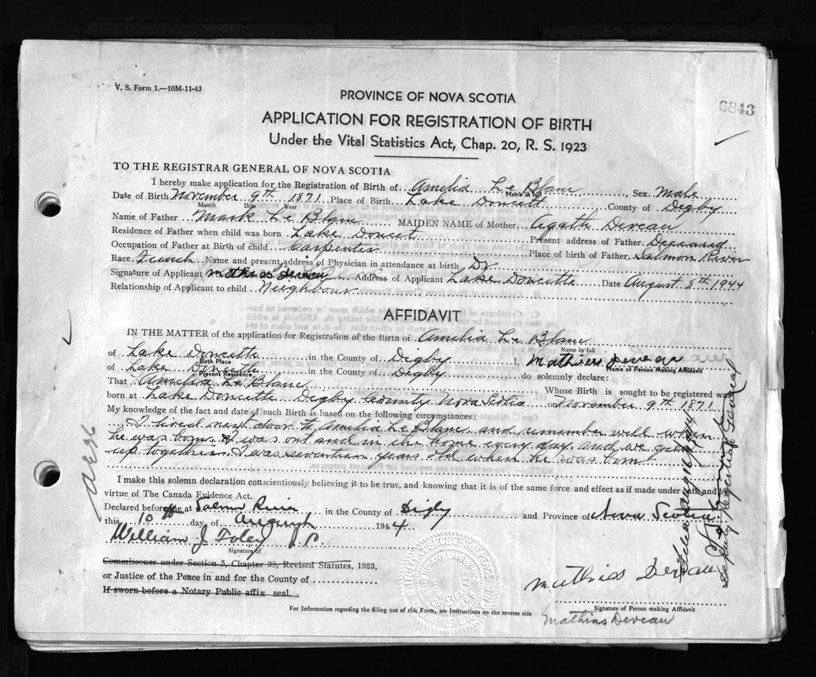 V. S. Form 1.—10M-11-43
PROVINCE OF NOVA SCOTIA
6843
APPLICATION FOR REGISTRATION OF BIRTH
Under the Vital Statistics Act, Chap. 20, R. S. 1923
TO THE REGISTRAR GENERAL OF NOVA SCOTIA
I hereby make application for the Registration of Birth of Amelia Le Blanc Sex Male
Name in full
Date of Birth November 9th 1871 Place of Birth Lake Doucett County of Digby
Month Day Year
Name of Father Mark Le Blanc MAIDEN NAME of Mother Agath Deveau
Residence of Father when child was born Lake Doucet Present address of Father Deceased
Occupation of Father at Birth of child Carpenter Place of birth of Father Salmon River
Race French Name and present address of Physician in attendance at birth Dr.
Signature of Applicant Mathias Deveau Address of Applicant Lake Doucette Date August 8th 1944
Relationship of Applicant to child Neighbour
AFFIDAVIT
IN THE MATTER of the application for Registration of the Birth of Amelia Le Blanc
Name in full
of Lake Doucette in the County of Digby I, Mathias Deveau
Birth Place Name of Person Making Affidavit
of Lake Doucette in the County of Digby do solemnly declare:
Person's Residence
That Amelia Le Blanc Whose Birth is sought to be registered was
born at Lake Doucette Digby County Nova Scotia November 9th 1871
My knowledge of the fact and date of such Birth is based on the following circumstances:
I lived next door to Amelia Le Blanc and remember well when
he was born. I was out and in the home every day and we grew
up together. I was seventeen years old when he was born
I make this solemn declaration conscientiously believing it to be true, and knowing that it is of the same force and effect as if made under oath and by
virtue of The Canada Evidence Act.
Declared before me at Salmon River in the County of Digby and Province of Nova Scotia
this 10 day of August 1944
William J. Foley J.P.
Signature of
Commissoner under Section 5, Chapter 33, Revised Statutes, 1923,
or Justice of the Peace in and for the County of
If sworn before a Notary Public affix seal
Mathias Deveau
Signature of Person making Affidavit
For Information regarding the filling out of this Form, see Instructions on the reverse side
Mathias Deveau
Deputy Registrar General